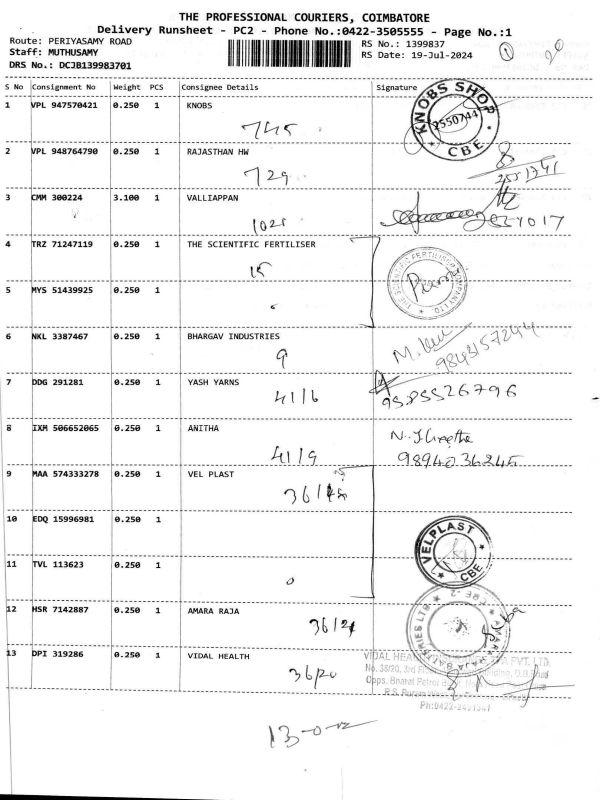 THE PROFESSIONAL COURIERS, COIMBATORE
Delivery Runsheet - PC2 - Phone No.:0422-3505555 - Page No.:1
Route: PERIYASAMY ROAD
Staff: MUTHUSAMY
DRS No.: DCJB139983701
RS No.: 1399837
RS Date: 19-Jul-2024
1
S No Consignment No Weight PCS Consignee Details Signature
1 VPL 947570421 0.250 1 KNOBS
745
KNOBS SHOP
2550744
CBE
2 VPL 948764790 0.250 1 RAJASTHAN HW
729
3 CMM 300224 3.100 1 VALLIAPPAN
1021
4 TRZ 71247119 0.250 1 THE SCIENTIFIC FERTILISER
15
THE SCIENTIFIC FERTILISER COMPANY LTD.
5 MYS 51439925 0.250 1
6 NKL 3387467 0.250 1 BHARGAV INDUSTRIES
9
9843157244
7 DDG 291281 0.250 1 YASH YARNS
41/6
9585526796
8 IXM 506652065 0.250 1 ANITHA
41/9
9894036245
9 MAA 574333278 0.250 1 VEL PLAST
10 EDQ 15996981 0.250 1
VELPLAST
CBE
11 TVL 113623 0.250 1
12 HSR 7142887 0.250 1 AMARA RAJA
36/21
AMARA RAJA BATTERIES LTD
CBE-2
13 DPI 319286 0.250 1 VIDAL HEALTH
36/20
VIDAL HEALTH PVT. LTD.
No. 36/20, 3rd
Opps. Bharat Petrol
Ph:0422-2491341